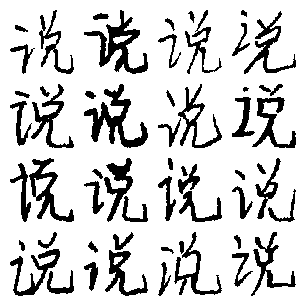 说说说说
说说说说
说说说说
说说说说